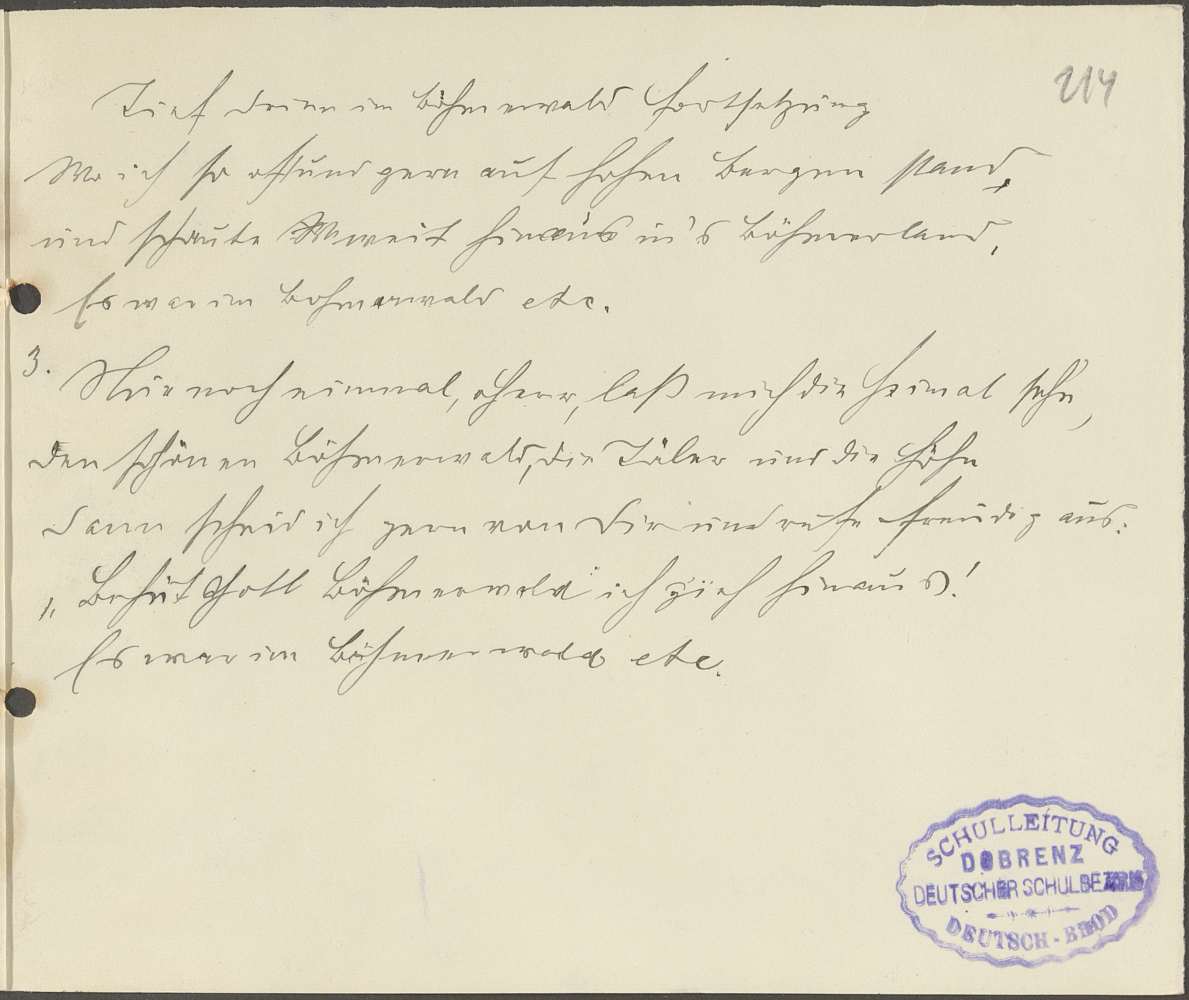 214
Tief drin im Böhmerwald Fortsetzung
Wo ich so oft und gern auf hohen Bergen stand,
und schaute weit hinaus in's Böhmerland,
Es war im Bohmerwald etc.
3.
Nur noch einmal, o Herr, laß mich die Heimat sehn,
den schönen Böhmerwald, die Täler und die Höhn
dann scheid ich gern von dir und rufe freudig aus:
„Behüt Gott Böhmerwald ich zieh hinaus!
Es war im Böhmerwald etc.
SCHULLEITUNG
DOBRENZ
DEUTSCHER SCHULBEZIRK
DEUTSCH-BROD